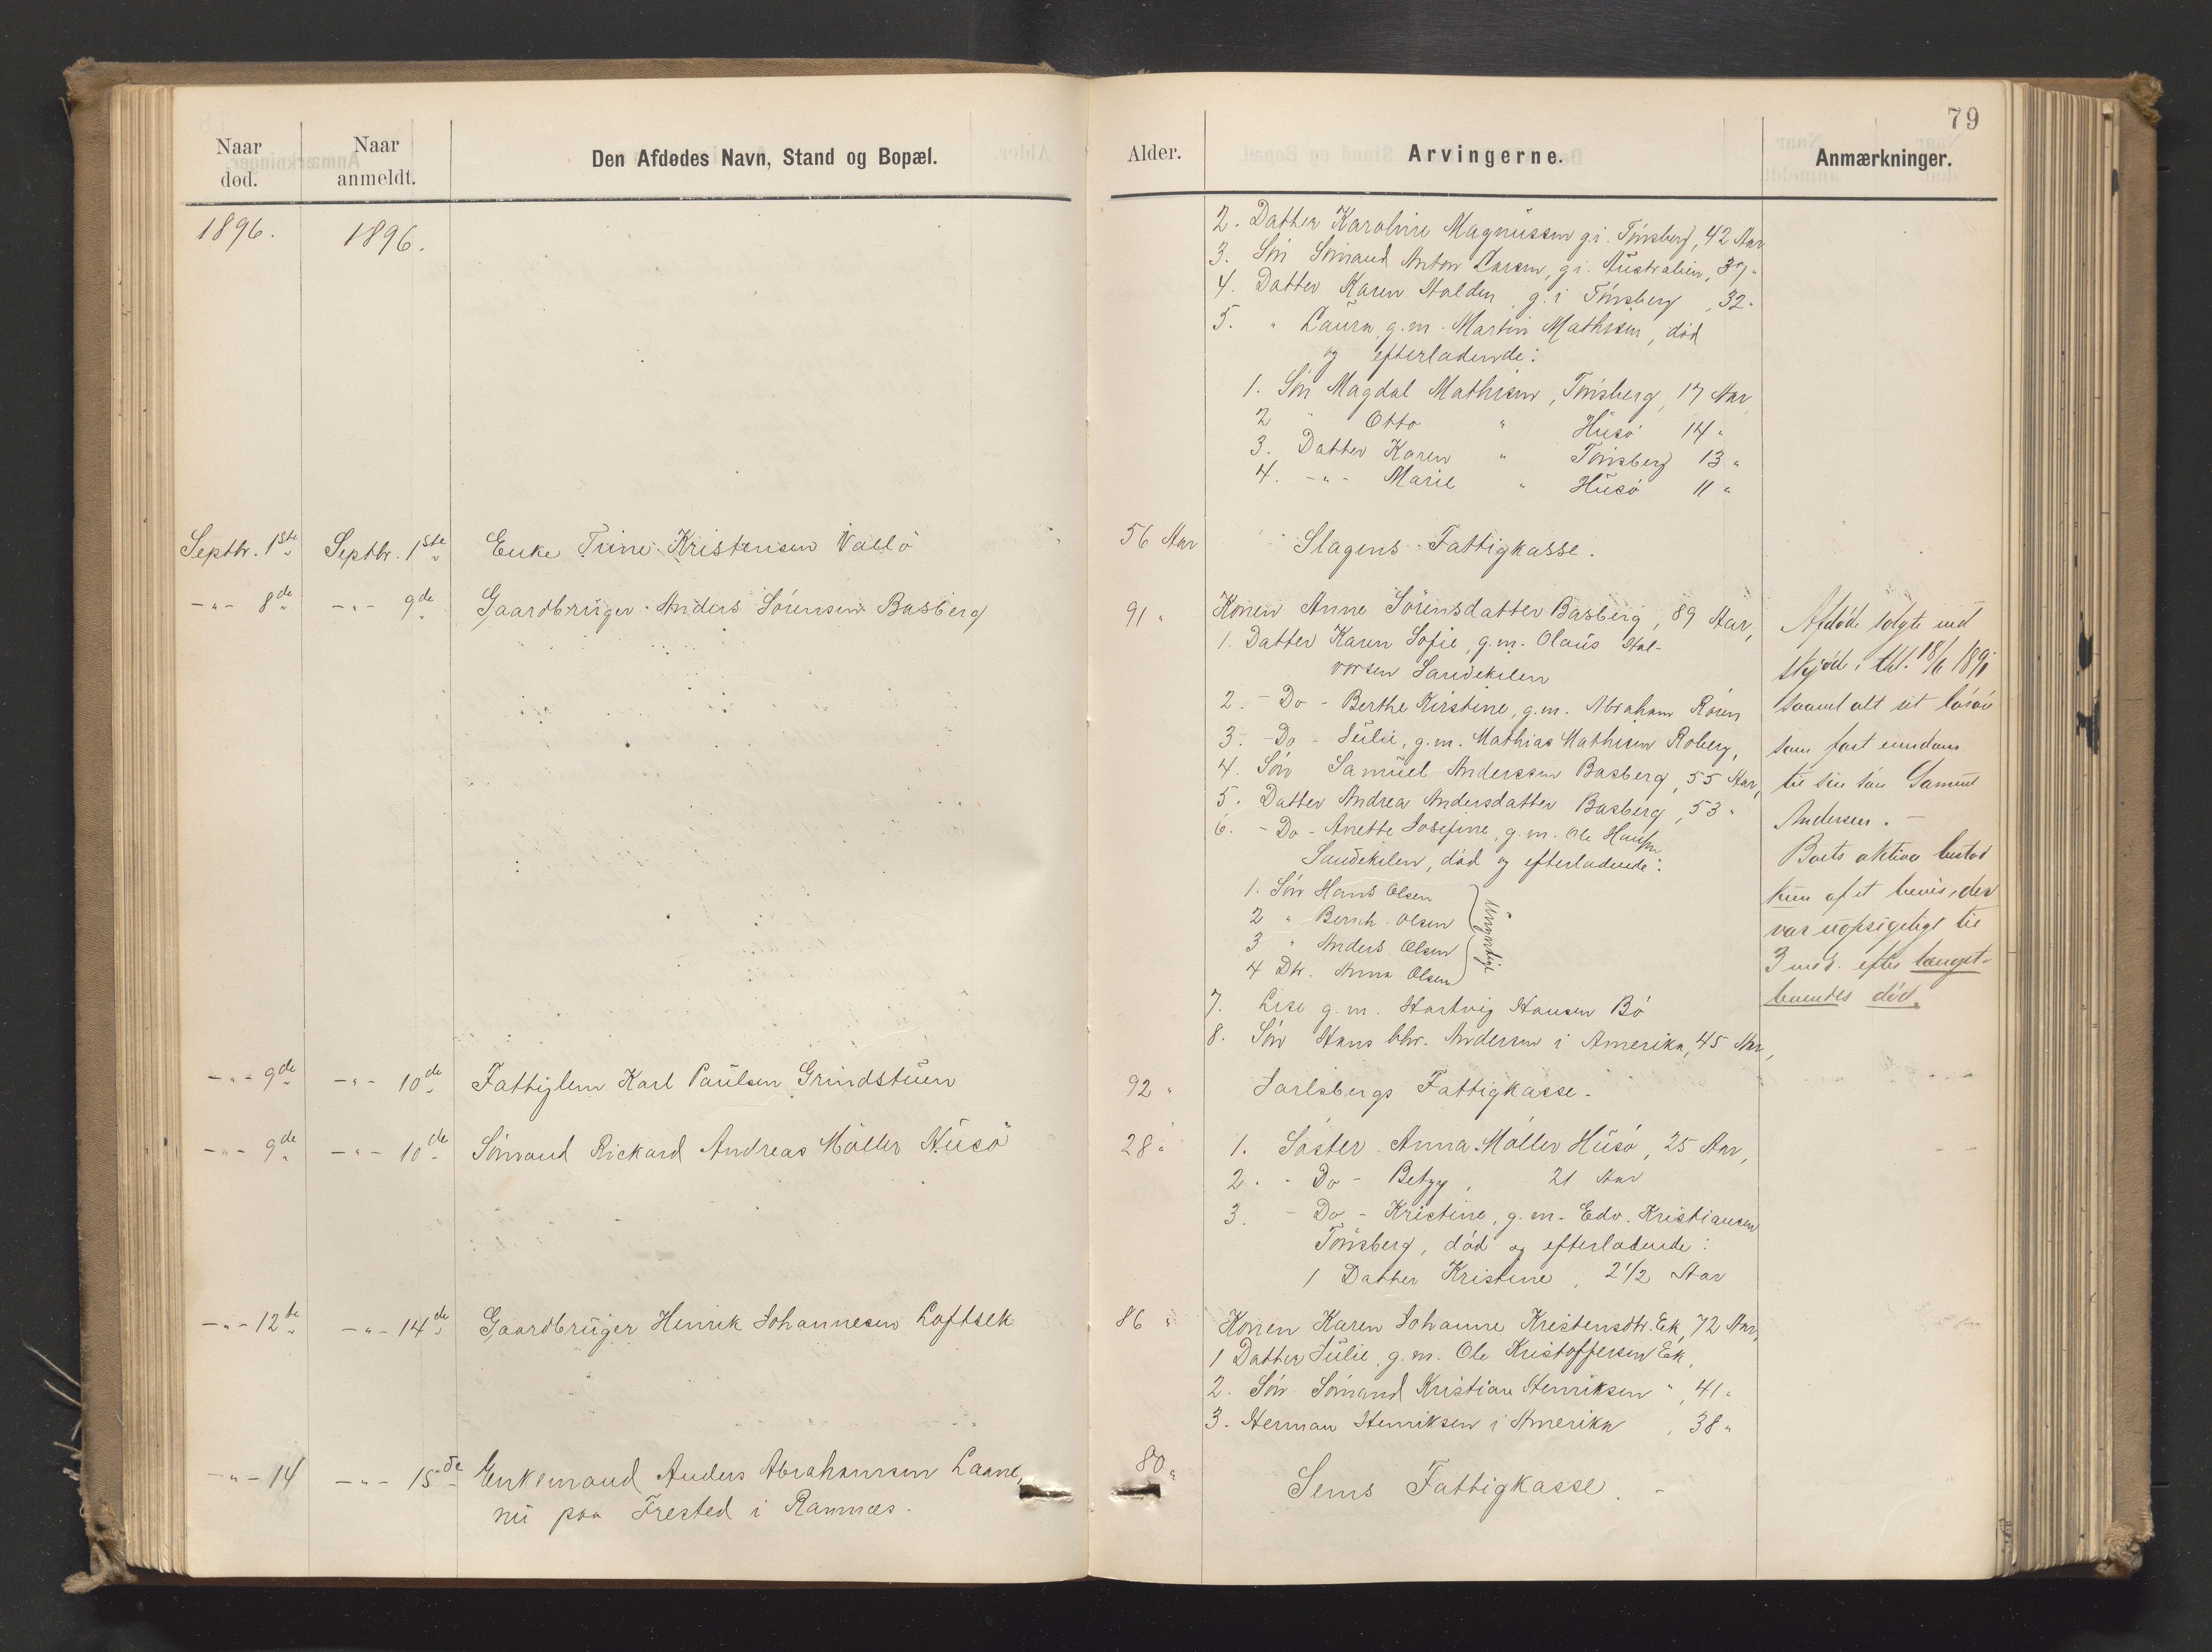 79
Naar død.
Naar anmeldt.
Den Afdødes Navn, Stand og Bopæl.
Alder.
Arvingerne.
Anmærkninger.
1896.
1896.
2. Datter Karoline Magnussen g. i. Tönsberg, 42 Aar
3. Sön Sömand Anton Larsen, g. i. Australien, 37 "
4. Datter Karen Halden g. i Tönsberg, 32 "
5. " Laura g. m. Martin Mathisen, död
og efterladende:
1. Sön Magdal Mathisen, Tönsberg, 17 Aar
2 " Otto " Husö 14 "
3. Datter Karen " Tönsberg 13 "
4. -"- Marie " Husö 11 "
Septbr. 1ste
Septbr. 1ste
Enke Trine Kristensen Vallö
56 Aar
Slagens Fattigkasse.
-"- 8de
-"- 9de
Gaardbruger Anders Sörensen Basberg
91 "
Konen Anne Sörensdatter Basberg, 89 Aar,
1. Datter Karen Sofie, g. m. Olaus Hal-
vorsen Sandekilen
2. - Do - Berthe Kirstine, g. m. Abraham Roren
3. - Do - Julie, g. m. Mathias Mathisen Roberg,
4. Sön Samuel Anderssen Basberg, 55 Aar,
5. Datter Andrea Andersdatter Basberg, 53 "
6. - Do - Anette Josefine, g. m. Ole Hansen
Sandekilen, död og efterladende:
1. Sön Hans Olsen
2 " Bernh. Olsen
3 " Anders Olsen
4 Dtr. Anna Olsen
Umyndige
7. Lise g. m. Hartvig Hansen Bö
8. Sön Hans Chr. Andersen i Amerika, 45 Aar,
Afdöde solgte ved
skjöde, thl. 18/6 1891
saavel alt sit lösöre
som fast eiendom
til sin sön Samuel
Andersen. -
Boets aktiva bestod
kun af et bevis, der
var uopsigeligt til
3 md. efter længst-
levendes död.
-"- 9de
-"- 10de
Fattiglem Karl Paulsen Grindstuen
92 "
Jarlsbergs Fattigkasse.
-"- 9de
-"- 10de
Sömand Rickard Andreas Möller Husö
28 "
1. Söster Anna Möller Husö, 25 Aar,
2. - Do - Betzy, 21 Aar
3. - Do - Kristine, g. m. Edv. Kristiansen
Tönsberg, död og efterladende:
1 Datter Kristine, 2 1/2 Aar
-"- 12te
-"- 14de
Gaardbruger Henrik Johannesen Loftsek
86 "
Konen Karen Johanne Kristensdtr. Ek, 72 Aar,
1 Datter Julie, g. m. Ole Kristoffersen Ek,
2. Sön Sömand Kristian Henriksen ", 41 "
3. Herman Henriksen i Amerika, 38 "
-"- 14
-"- 15de
Enkemand Anders Abrahamsen Laane,
nu paa Frested i Ramnæs.
80 "
Sems Fattigkasse. -